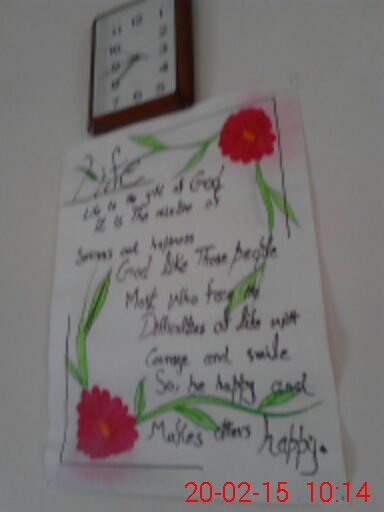 12 1
11 2
10 3
9 4
8 5
7 6
Life
Life is the gift of God
It is the mixture of
Sorrows and happness
God like Those people
Most who face the
Difficulties of life with
Courage and smile
So, be happy and
Makes others happy.
20-02-15 10:14